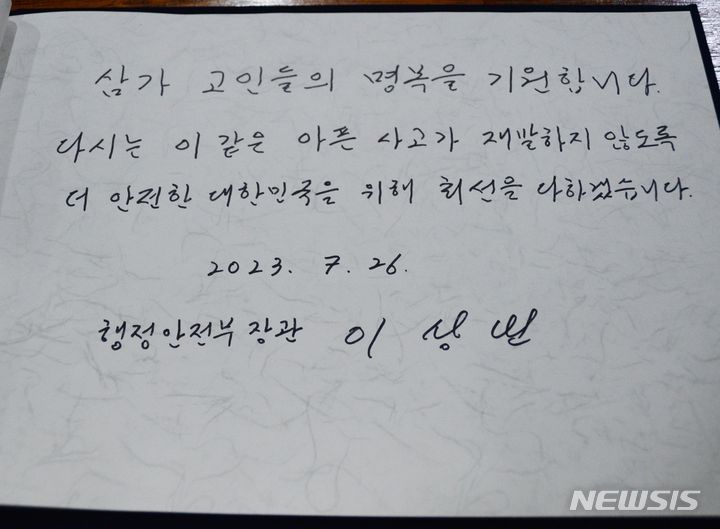 삼가 고인들의 명복을 기원합니다.
다시는 이 같은 아픈 사고가 재발하지 않도록
더 안전한 대한민국을 위해 최선을 다하겠습니다.
2023. 7. 26.
행정안전부장관 이상민
NEWSIS